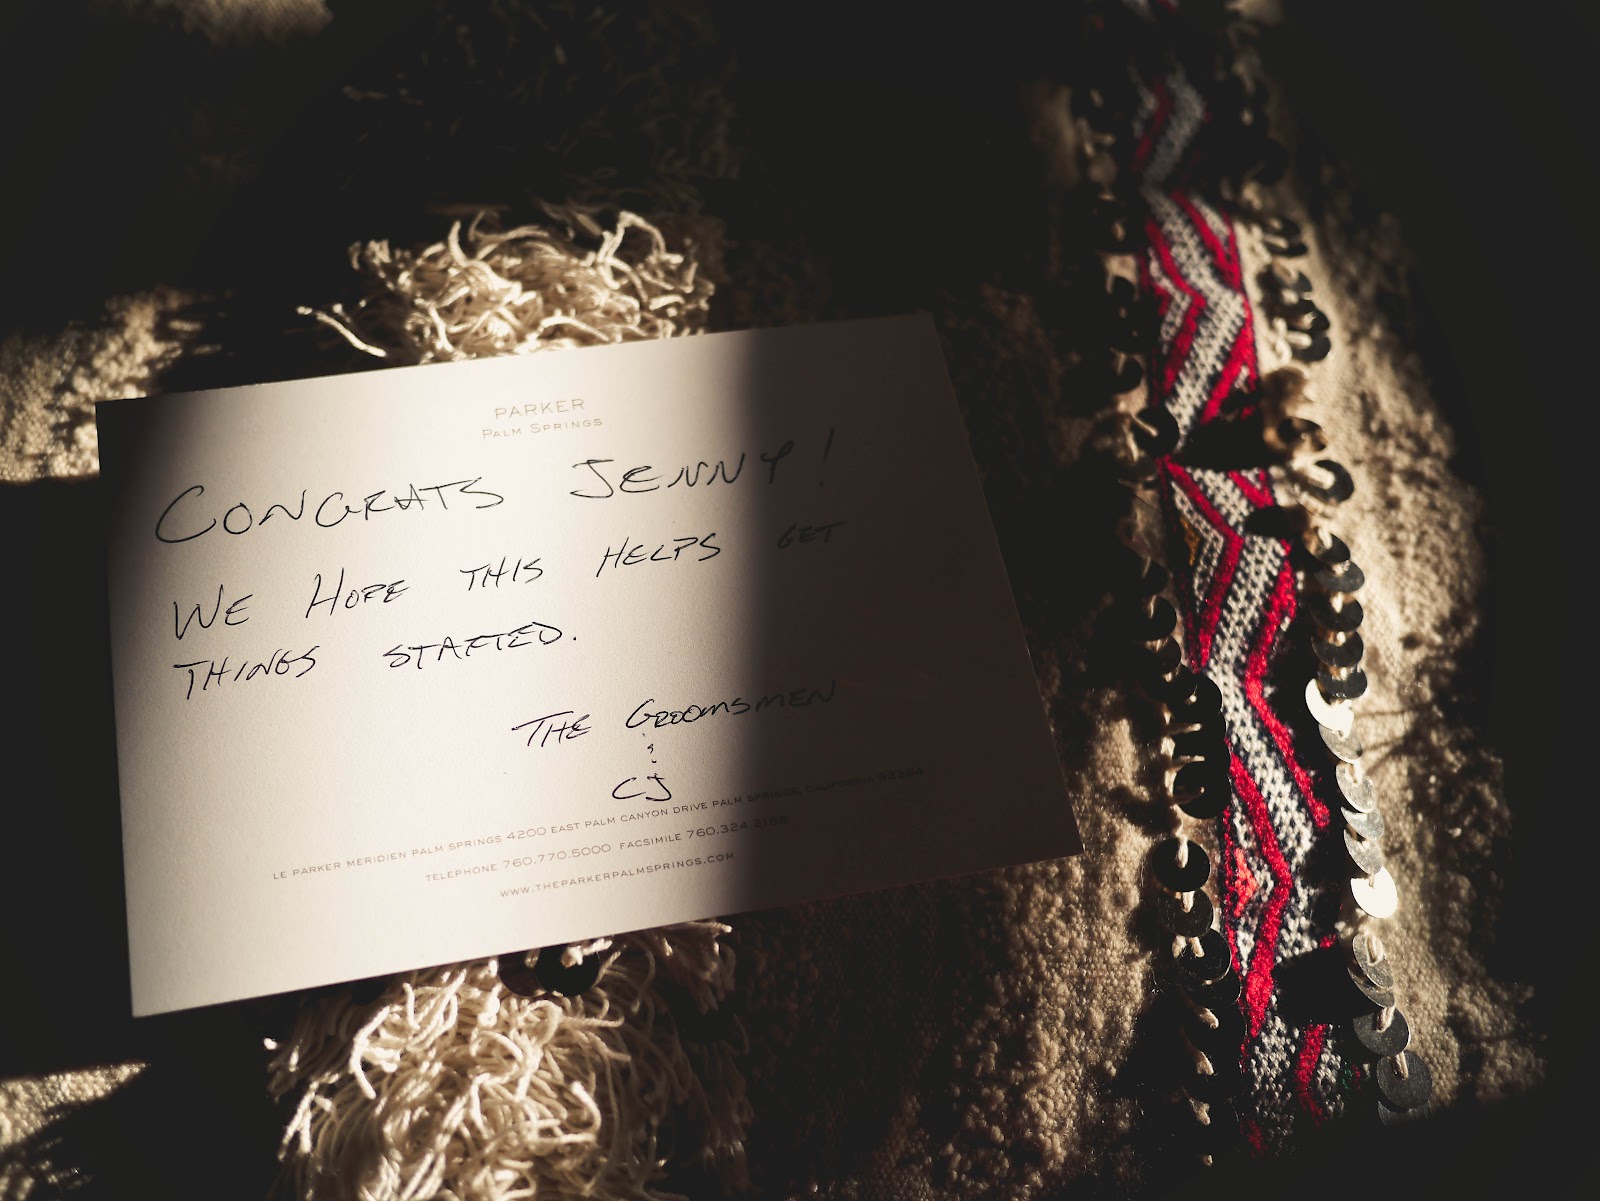 PARKER
PALM SPRINGS
CONGRATS JENNY!
WE HOPE THIS HELPS GET
THINGS STARTED.
THE GROOMSMEN
&
CJ
LE PARKER MERIDIEN PALM SPRINGS 4200 EAST PALM CANYON DRIVE PALM SPRINGS, CALIFORNIA 92264
TELEPHONE 760.770.5000 FACSIMILE 760.324.2188
WWW.THEPARKERPALMSPRINGS.COM